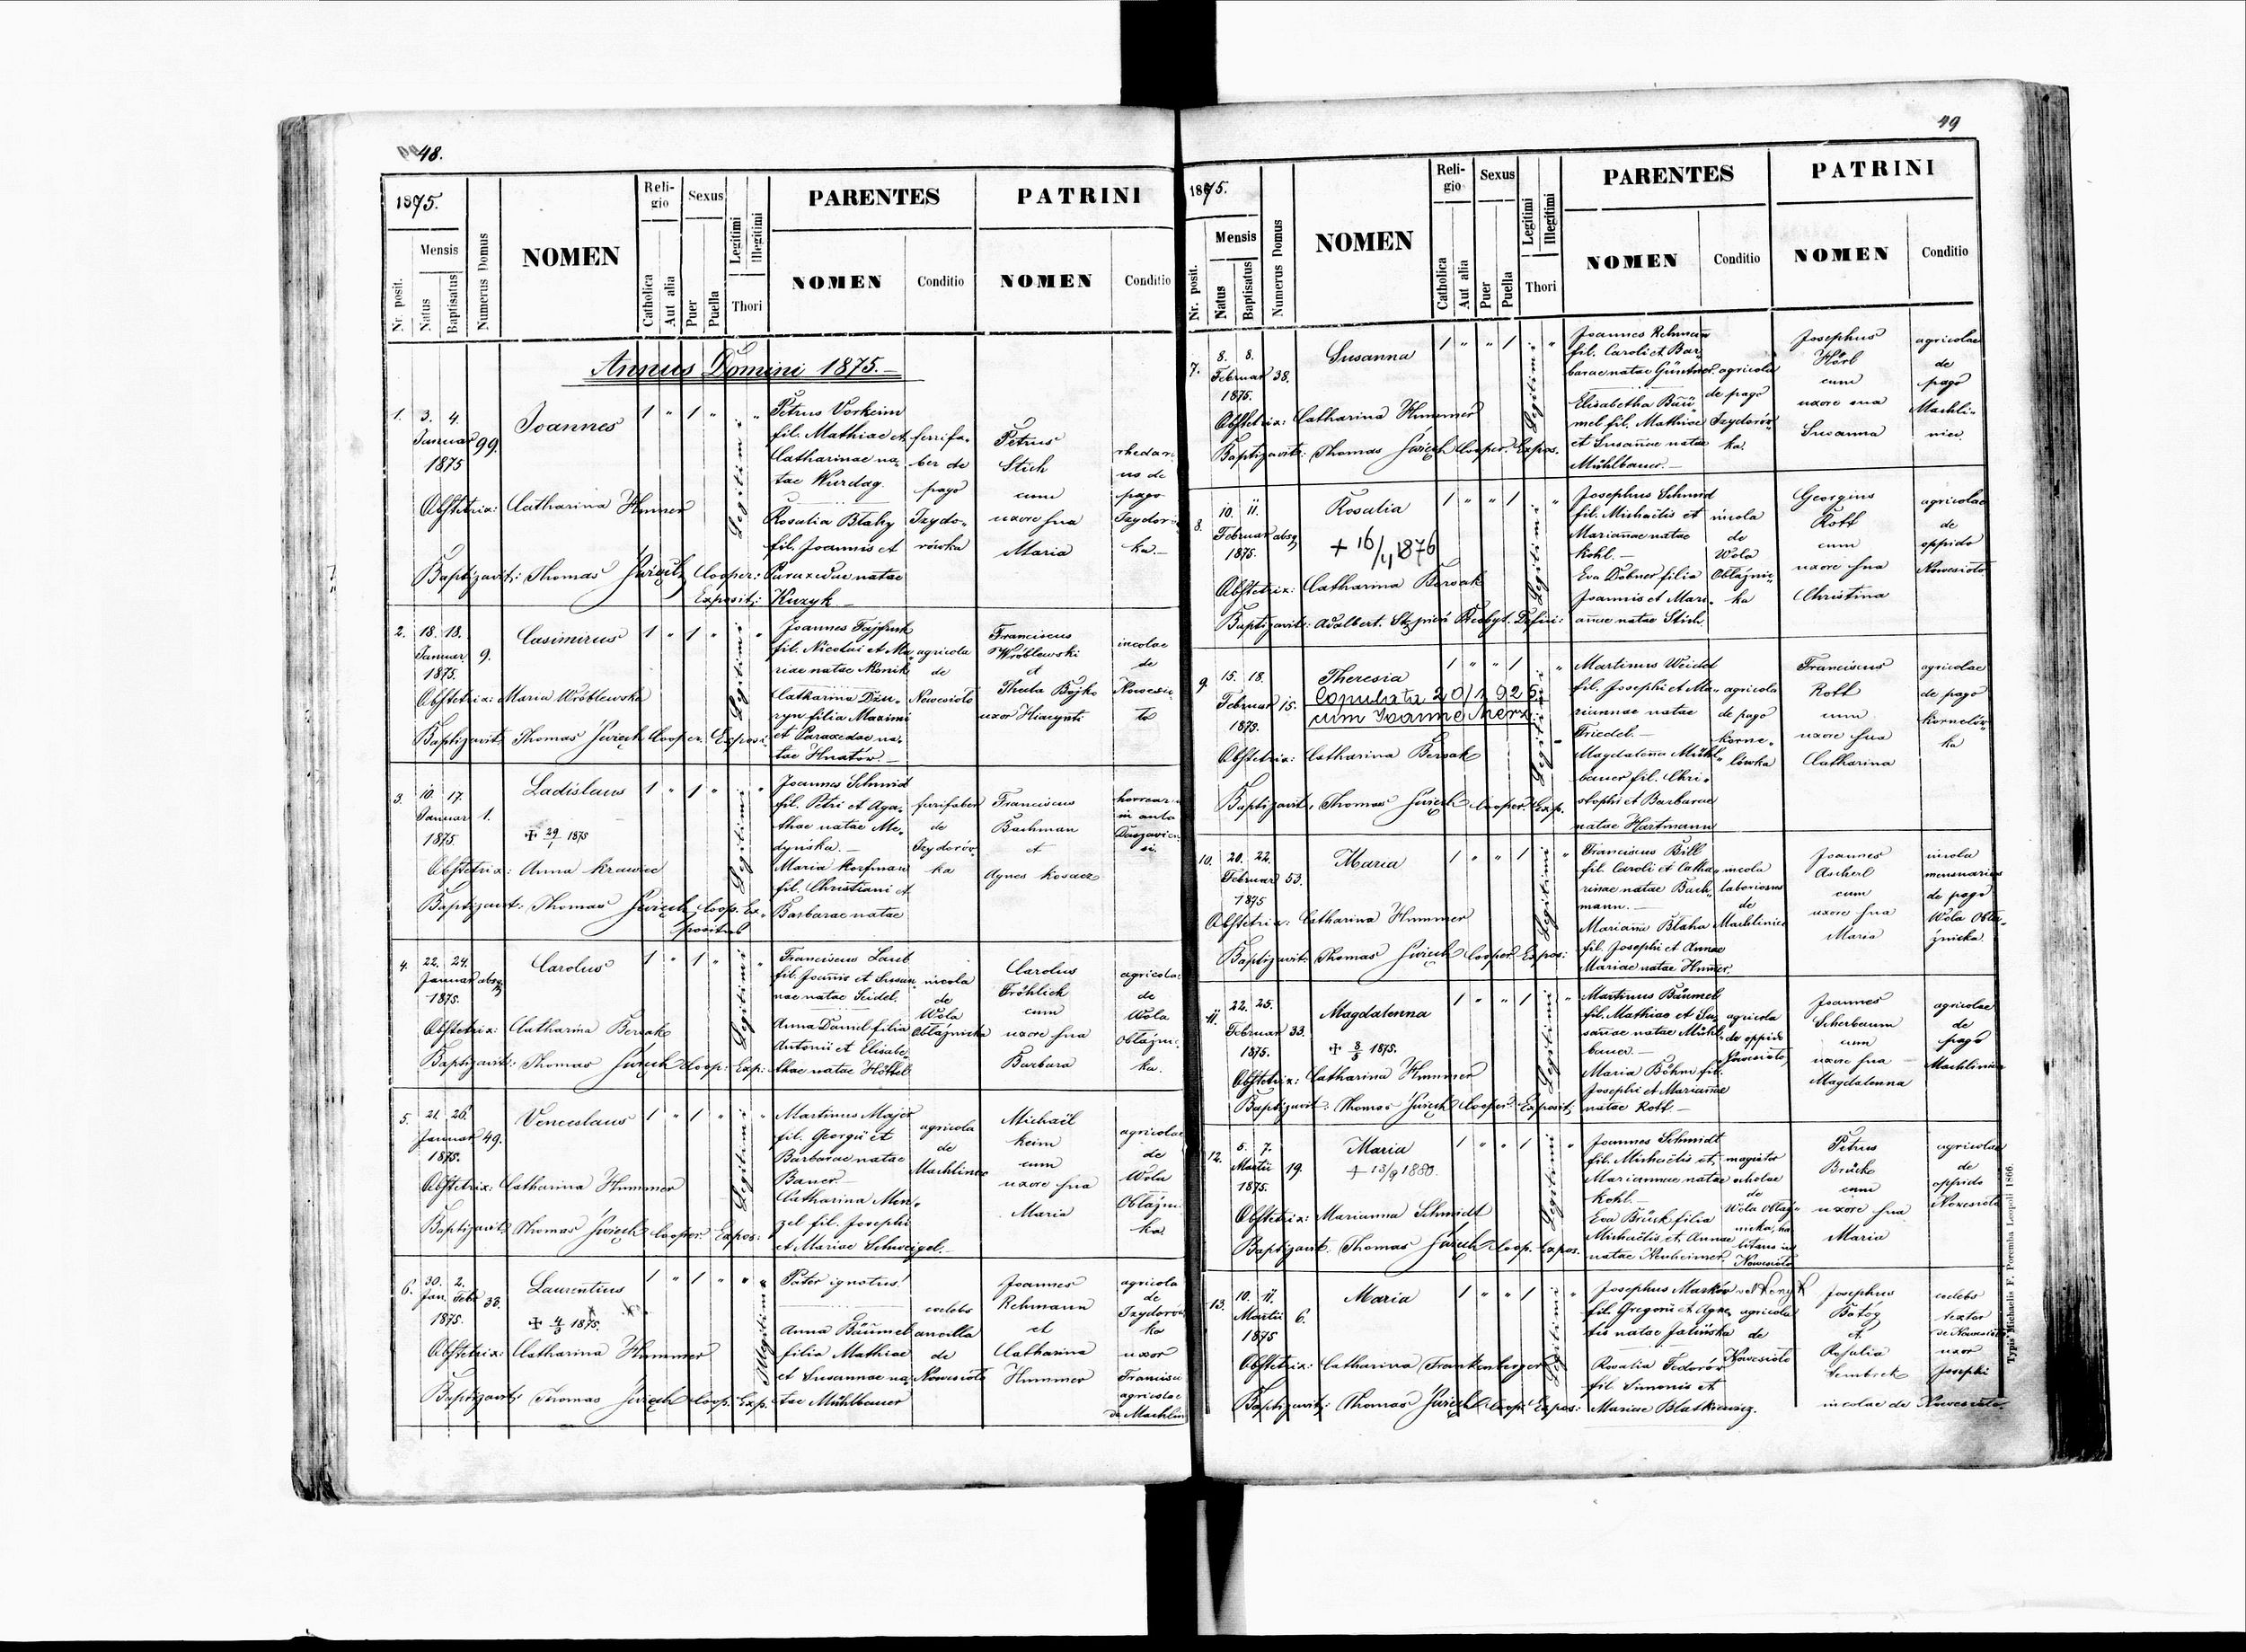 48.
1875.
Mensis
Nr. posit.
Natus
Baptisatus
Numerus Domus
NOMEN
Reli-
gio
Catholica
Aut alia
Sexus
Puer
Puella
Legitimi
Illegitimi
Thori
PARENTES
NOMEN
Conditio
PATRINI
NOMEN
Conditio
Annus Domini 1875.-
1.
3. 4.
Januar
1875
99.
Joannes
1 " 1 "
Legitimi
Petrus Vorkeim
fil. Mathiae et
Catharinae na-
tae Kurdag.
Rosalia Blahy
fil. Joannis et
Paraxedae natae
Kuzyk -
ferrifa-
ber de
pago
Izydo-
rówka
Petrus
Stich
cum
uxore sua
Maria
pago
ka -
Obstetrix: Catharina Hummer
Baptizavit: Thomas Świech Cooper:
Exposit:
2.
18. 18.
Januar
1875.
9.
Casimirus
1 " 1 "
Legitimi
Joannes
fil. Nicolai et Ma-
riae natae
Catharina Dzu-
ryn filia Maximi
et Paraxedae na-
tae Hnatów. -
agricola
de
Nowesioło
Franciscus
Wróblewski
et
Thecla Bojko
uxor Hiacynti
incolae
de
Nowesio-
ło
Obstetrix: Maria Wróblewska
Baptizavit: Thomas Świech Cooper. Exposi.
3.
10. 17.
Januar
1875.
1.
Ladislaus
✠ 29/1 1875
1 " 1 "
Legitimi
Joannes Schmid
fil. Petri et Aga-
thae natae Me-
dyńska. -
Maria Korfman
fil. Christiani et
Barbarae natae
ferrifaber
de
Izydorów-
ka
Franciscus
Bachman
et
Agnes Kosacz
Obstetrix: Anna Krawiec
Baptizavit: Thomas Świech, Coop. Ex-
positus
4.
22. 24.
Januar
1875.
absq
Carolus
1 " 1 "
Legitimi
Franciscus Laub
fil. Joannis et Susan-
nae natae Seidel.
Anna Daniel filia
Antonii et Elisabe-
thae natae Höttel
incola
de
Wola
Obłaźnicka
Carolus
Fröhlich
cum
uxore sua
Barbara
agricolae
de
Wola
Obłaźni-
ka.
Obstetrix: Catharina Bersak
Baptizavit: Thomas Świech Coop: Exp:
5.
21. 26.
Januar
1875.
49.
Venceslaus
1 " 1 "
Legitimi
Martinus Majer
fil. Georgii et
Barbarae natae
Bauer. -
Catharina Men-
zel fil. Josephi
et Mariae Schweigel. -
agricola
de
Machlinec
Michaël
Keim
cum
uxore sua
Maria
agricolae
de
Wola
Obłaźni-
ka
Obstetrix: Catharina Hummer
Baptizavit: Thomas Świech Cooper: Expos:
6.
30. 2.
Jan. Febr
1875.
38.
Laurentius
✠ 4/3 1875.
1 " 1 "
Illegitimi
Pater ignotus!
Anna Bäumel
filia Mathiae
et Susannae na-
tae Mühlbauer
coelebs
ancilla
de
Nowesioło
Joannes
Rehmann
et
Catharina
Hummer
agricola
de
Izydorów
ka
uxor
Francisci
agricolae
de Machlin
Obstetrix: Catharina Hummer
Baptizavit: Thomas Świech Coop. Exp.
49
1875.
Mensis
Nr. posit.
Natus
Baptisatus
Numerus Domus
NOMEN
Reli-
gio
Catholica
Aut alia
Sexus
Puer
Puella
Legitimi
Illegitimi
Thori
PARENTES
NOMEN
Conditio
PATRINI
NOMEN
Conditio
7.
8. 8.
Februar
1875.
38.
Susanna
1 " " 1
Legitimi
Joannes Rehmann
fil. Caroli et Bar-
barae natae Güntner.
Elisabetha Bäu-
mel fil. Mathiae
et Susannae natae
Mühlbauer. -
agricola
de pago
Izydorów-
ka.
Josephus
Hörl
cum
uxore sua
Susanna
agricolae
de
pago
Machli-
niec.
Obstetrix: Catharina Hummer
Baptizavit: Thomas Świech Cooper. Expos.
8.
10. 11.
Februar
1875.
absq
Rosalia
+ 16/4 1876
1 " " 1
Legitimi
Josephus Schmid
fil. Michaëlis et
Mariannae natae
Kohl. -
Eva Dobner filia
Joannis et Mari-
annae natae Stich
incola
de
Wola
Obłaźnic-
ka
Georgius
Rott
cum
uxore sua
Christina
agricolae
de
oppido
Nowesioło
Obstetrix: Catharina Bersak
Baptizavit: Adalbert. Stępień Presbyt. Defici:
9.
15. 18.
Februar
1875.
15.
Theresia
Copulata 20/1 925
cum Joanne Merz.
1 " " 1
Legitimi
Martinus Weidel
fil. Josephi et Ma-
riannae natae
Friedel. -
Magdalena Mühl-
bauer fil. Chri-
stophi et Barbarae
natae Hartmann
agricola
de pago
Korne-
lówka
Franciscus
Rott
cum
uxore sua
Catharina
agricolae
de pago
Kornelów-
ka
Obstetrix: Catharina Bersak
Baptizavit: Thomas Świech Cooper. Exp.
10.
20. 22.
Februar
1875
53.
Maria
1 " " 1
Legitimi
Franciscus Bill
fil. Caroli et Catha-
rinae natae Bach-
mann. -
Marianna Blaha
fil. Josephi et Annae
Mariae natae Hummer.
incola
laboriosus
de
Machliniec
Joannes
Ascherl
cum
uxore sua
Maria
incola
de pago
Wola Obła-
źnicka.
Obstetrix: Catharina Hummer
Baptizavit: Thomas Świech Cooper. Expos:
11.
22. 25.
Februar
1875.
33.
Magdalenna
✠ 8/5 1875.
1 " " 1
Legitimi
Martinus Bäumel
fil. Mathias et Su-
sannae natae Mühl-
bauer. -
Maria Böhm fil.
Josephi et Mariannae
natae Rott. -
agricola
de oppido
Nowesioło
Joannes
Scherbaum
cum
uxore sua
Magdalenna
agricolae
de
pago
Machliniec
Obstetrix: Catharina Hummer
Baptizavit: Thomas Świech Cooper. Exposit:
12.
5. 7.
Martii
1875.
19.
Maria
+ 13/9 1880.
1 " " 1
Legitimi
Joannes Schmidt
fil. Michaëlis et
Mariannae natae
Kohl. -
Eva Brück filia
Michaëlis et Annae
natae Neuheimer.
magister
scholae
de
Wola Obłaź-
nicka, ha-
bitans in
Nowesioło
Petrus
Brück
cum
uxore sua
Maria
agricolae
de
oppido
Nowesioło
Obstetrix: Marianna Schmidt
Baptizavit: Thomas Świech Coop. Expos.
13.
10. 11.
Martii
1875
6.
Maria
1 " " 1
Legitimi
Josephus Marków
fil. Gregorii et Agne-
tis natae Jalińska
Rosalia Fedorów
fil. Simonis et
Mariae Blatkiewicz.
agricola
de
Nowesioło
Josephus
Batóg
et
Rosalia
Sembrek
coelebs
textor
de Nowesioło
uxor
Josephi
incolae de Nowesioło.
Obstetrix: Catharina Frankenberger
Baptizavit: Thomas Świech Coop: Expos:
Typis Michaelis F. Poremba Leopoli 1866.